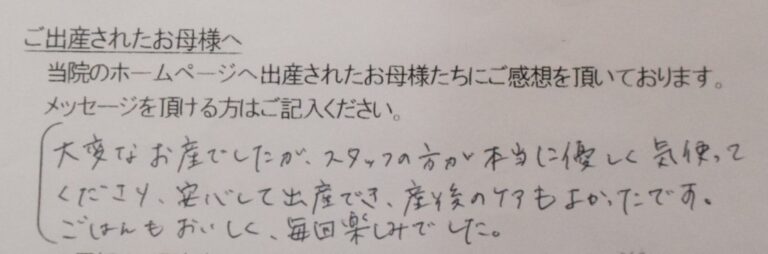 ご出産されたお母様へ
当院のホームページへ出産されたお母様たちにご感想を頂いております。
メッセージを頂ける方はご記入ください。
大変なお産でしたが、スタッフの方が本当に優しく気使って
くださり、安心して出産でき、産後のケアもよかったです。
ごはんもおいしく、毎回楽しみでした。